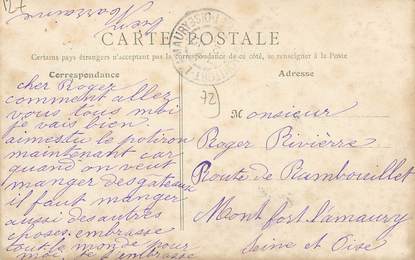 127
CARTE POSTALE
Certains pays étrangers n'acceptant pas la correspondance de ce côté, se renseigner à la Poste
Correspondance
Adresse
72
cher Roger
comment allez
vous tous moi
je vais bien
aimes tu le potiron
maintenant car
quand on veut
manger des gateaux
il faut manger
aussi des autres
choses. embrasse
tout le monde pour
moi, je t'embrasse
Monsieur
Roger Rivièrre
Route de Rambouillet
Montfort l'amaury
Seine et Oise